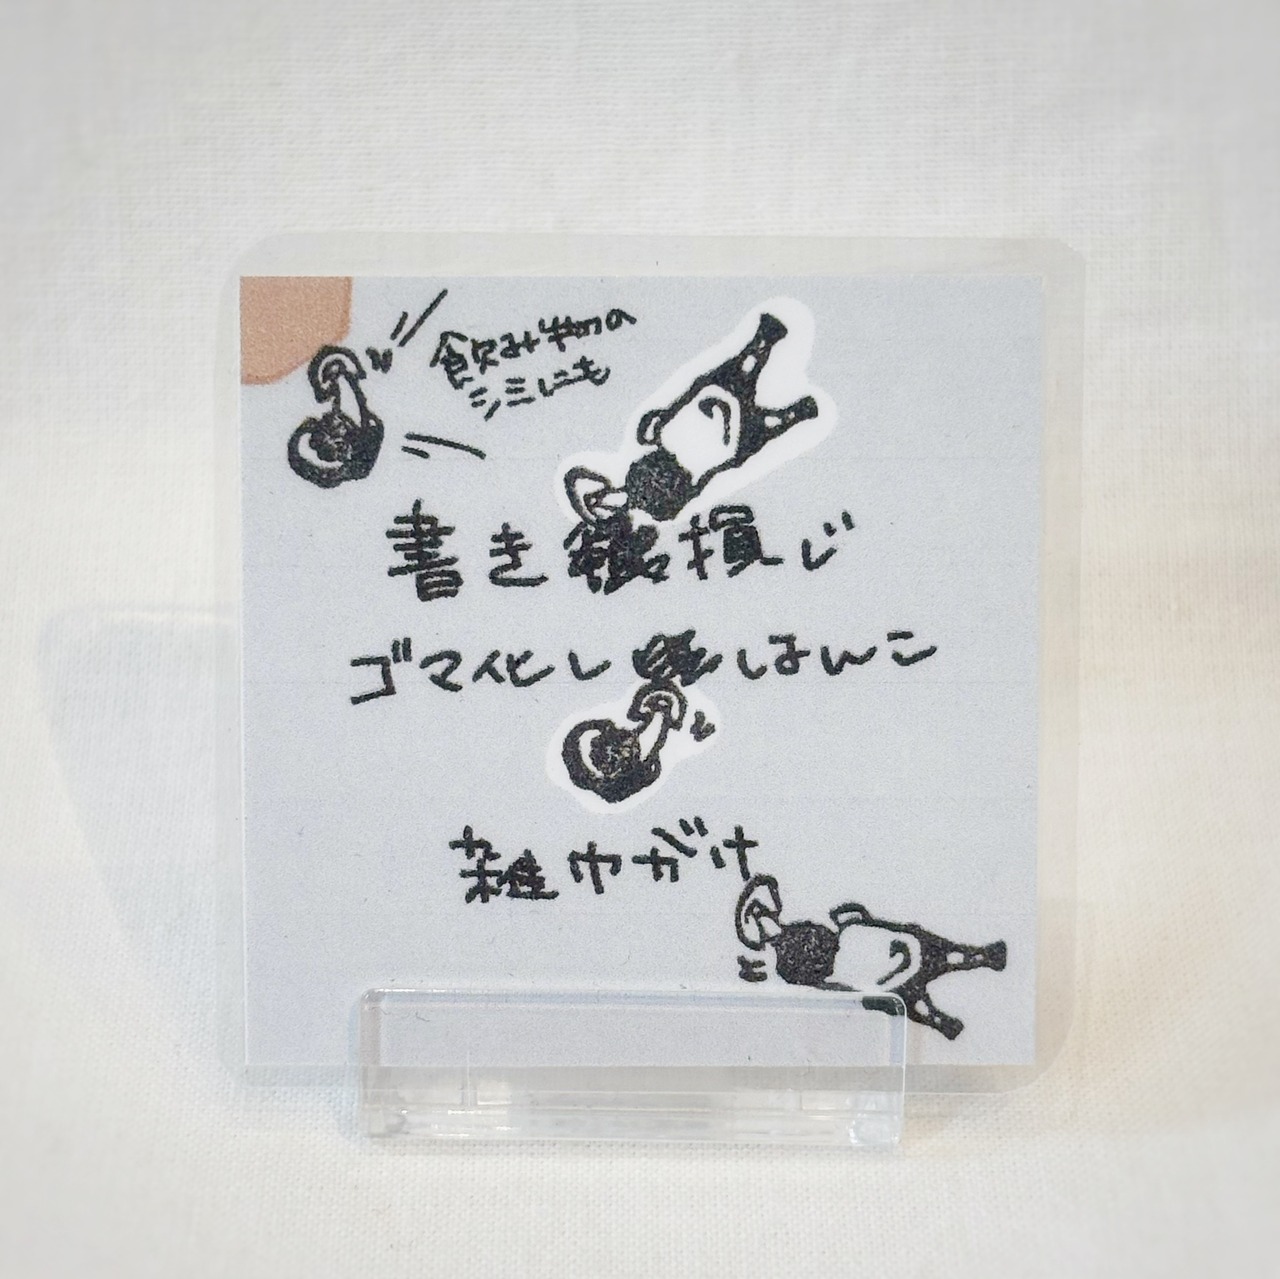 飲み物の
シミにも
書き損じ
ゴマ化しはんこ
雑巾がけ